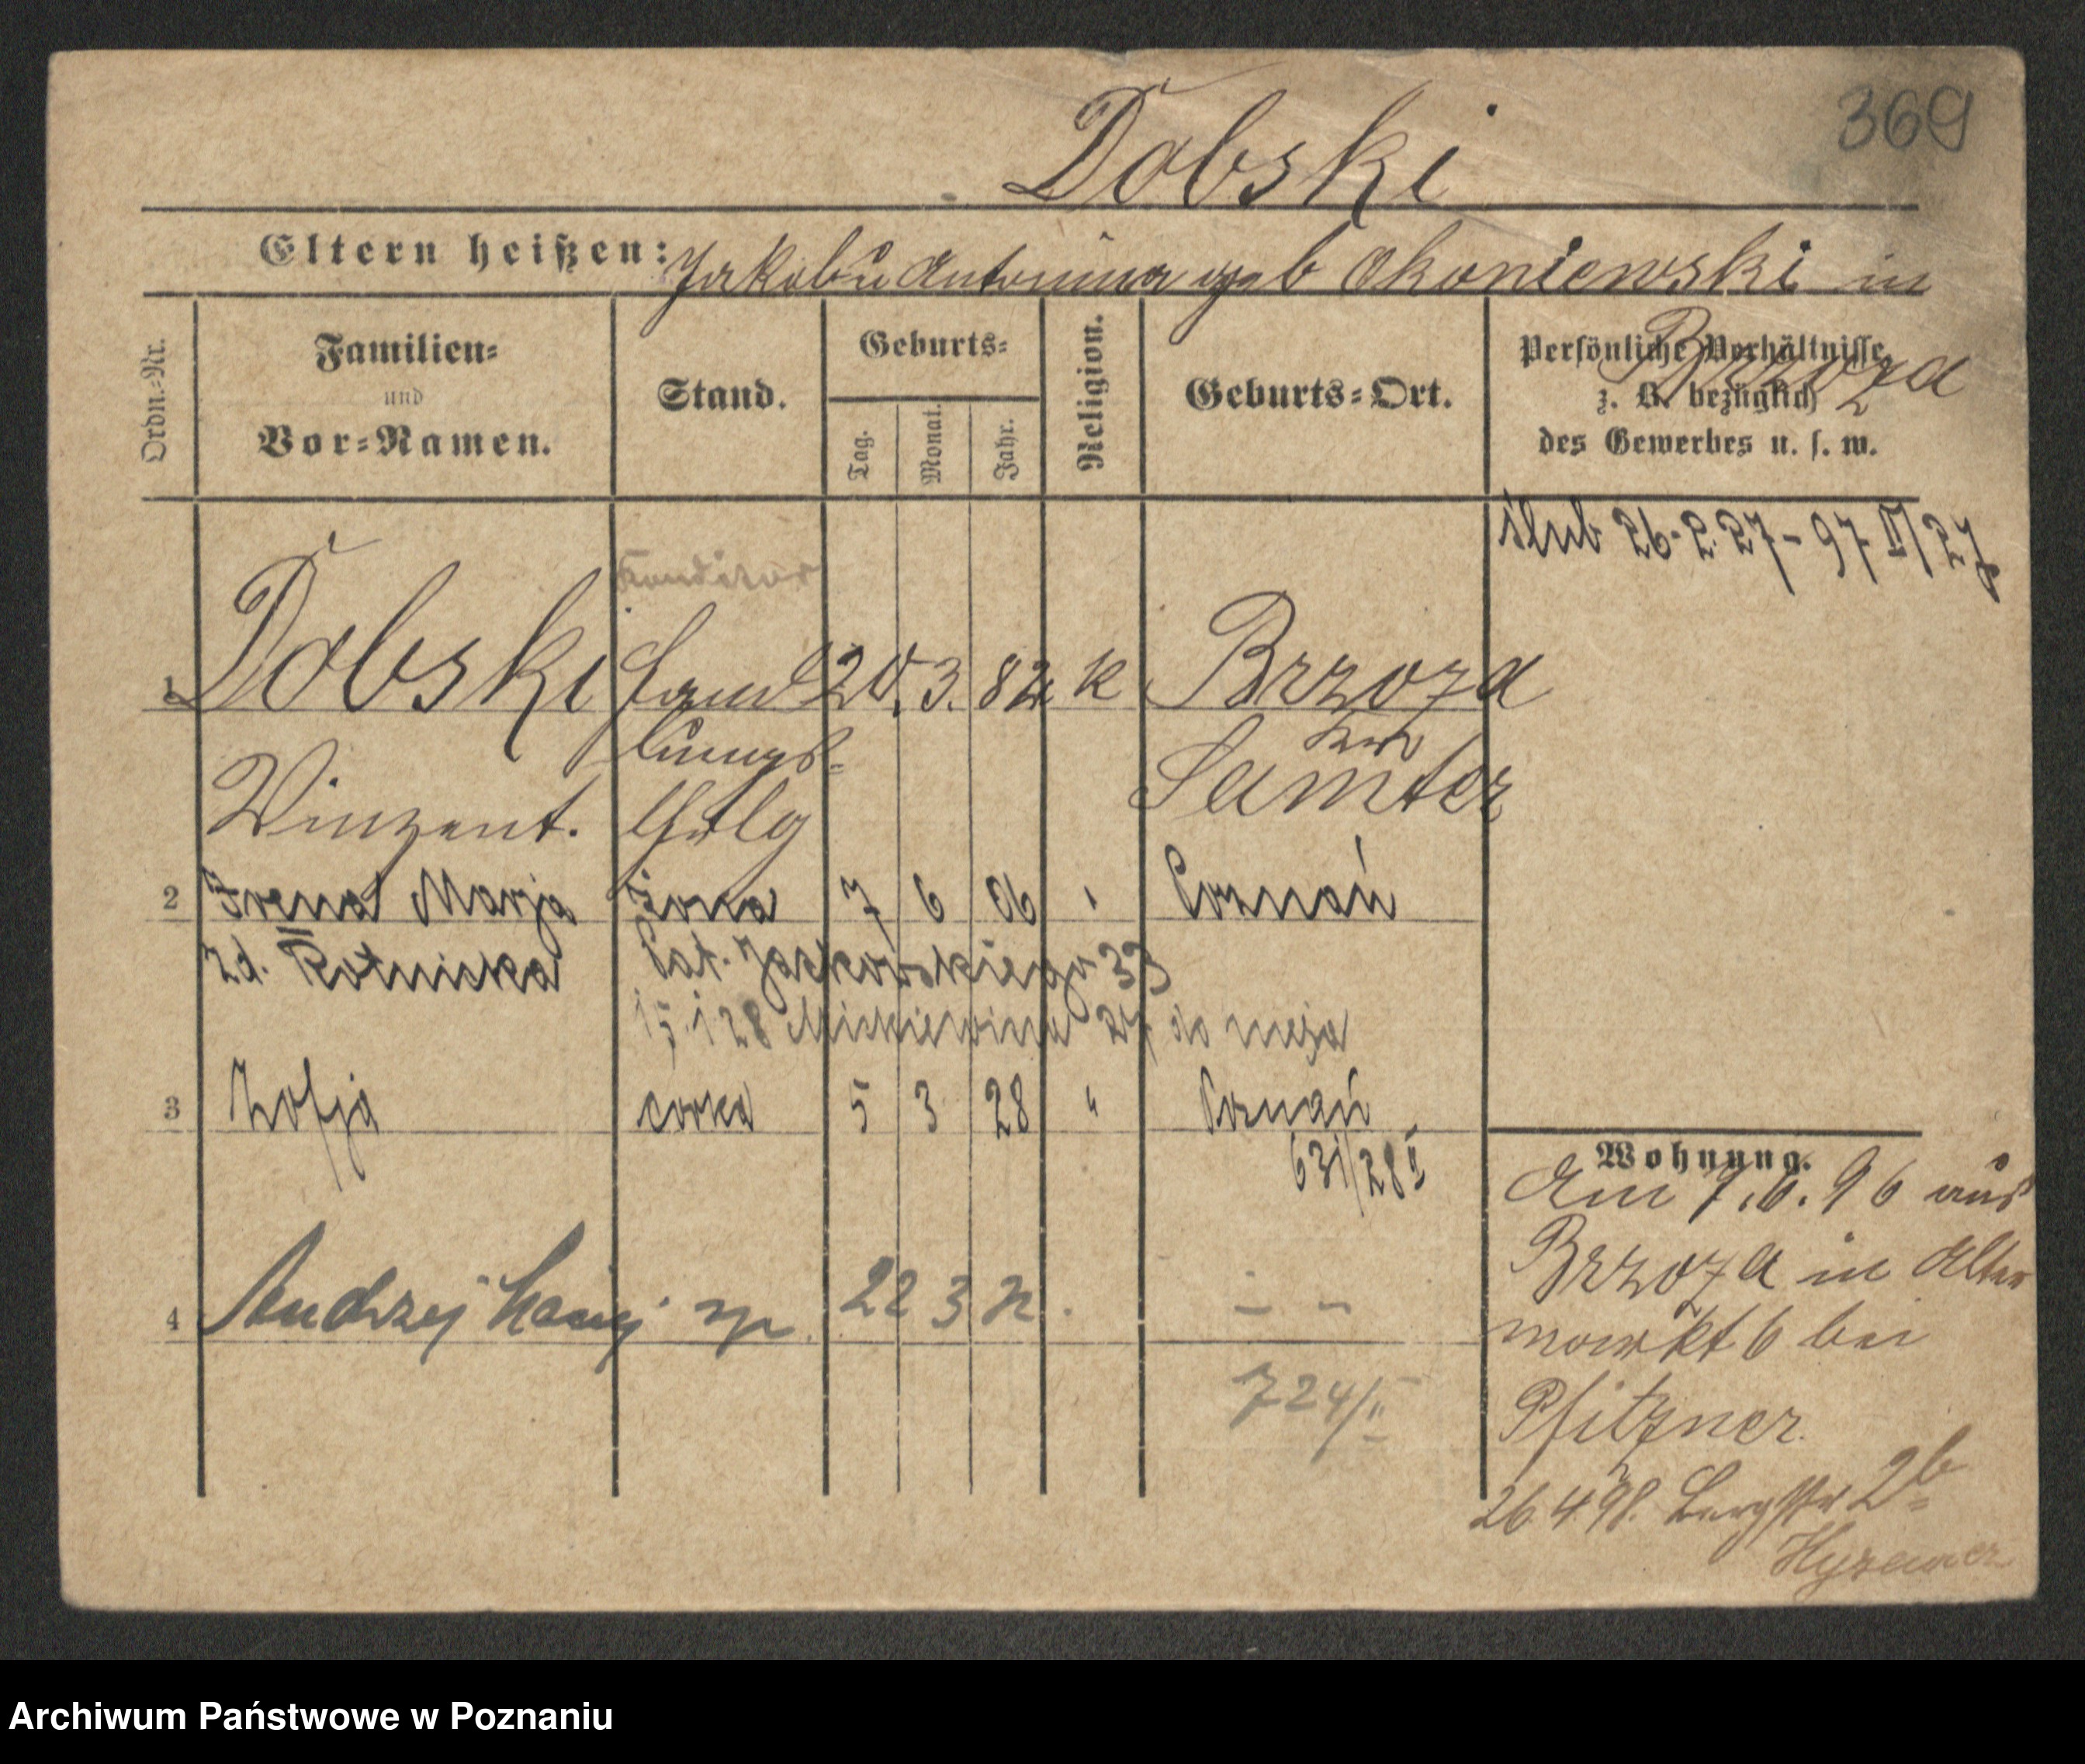 369
Dobski
Eltern heißen: Jakob u Antonina geb Okoniewski in
Brzoza
Ordn.-Nr.
Familien- und Vor-Namen.
Stand.
Geburts-
Tag.
Monat.
Jahr.
Religion.
Geburts-Ort.
Persönliche Verhältnisse,
z. B. bezüglich
des Gewerbes u. s. w.
ślub 26.2.27 - 97 II/27
Konditor
1 Dobski Hand 20. 3. 82 k Brzoza
lungs- Kr
Winzent. Samter
2 Irena Marja żona 7 6 06 " Poznań
z d. Rotnicka Pat. Jackowskiego 33
15.1.28 Mickiewicza 27 do męża
3 Zofja córka 5 3 28 " Poznań
631/28 II
4 Andrzej syn 22 3 - -
724/II
Wohnung.
Am 7.6.96 aus
Brzoza in Alter
markt 6 bei
Pfitzner.
26.4.98. Bergstr 2b